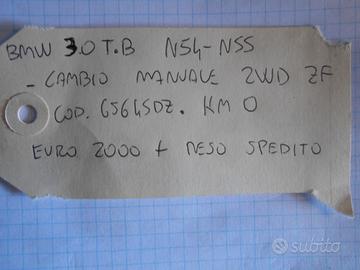 BMW 3.0 T.B N54-N55
- CAMBIO MANUALE 2WD ZF
COD. GS645DZ. KM 0
EURO 2000 + RESO SPEDITO
subito